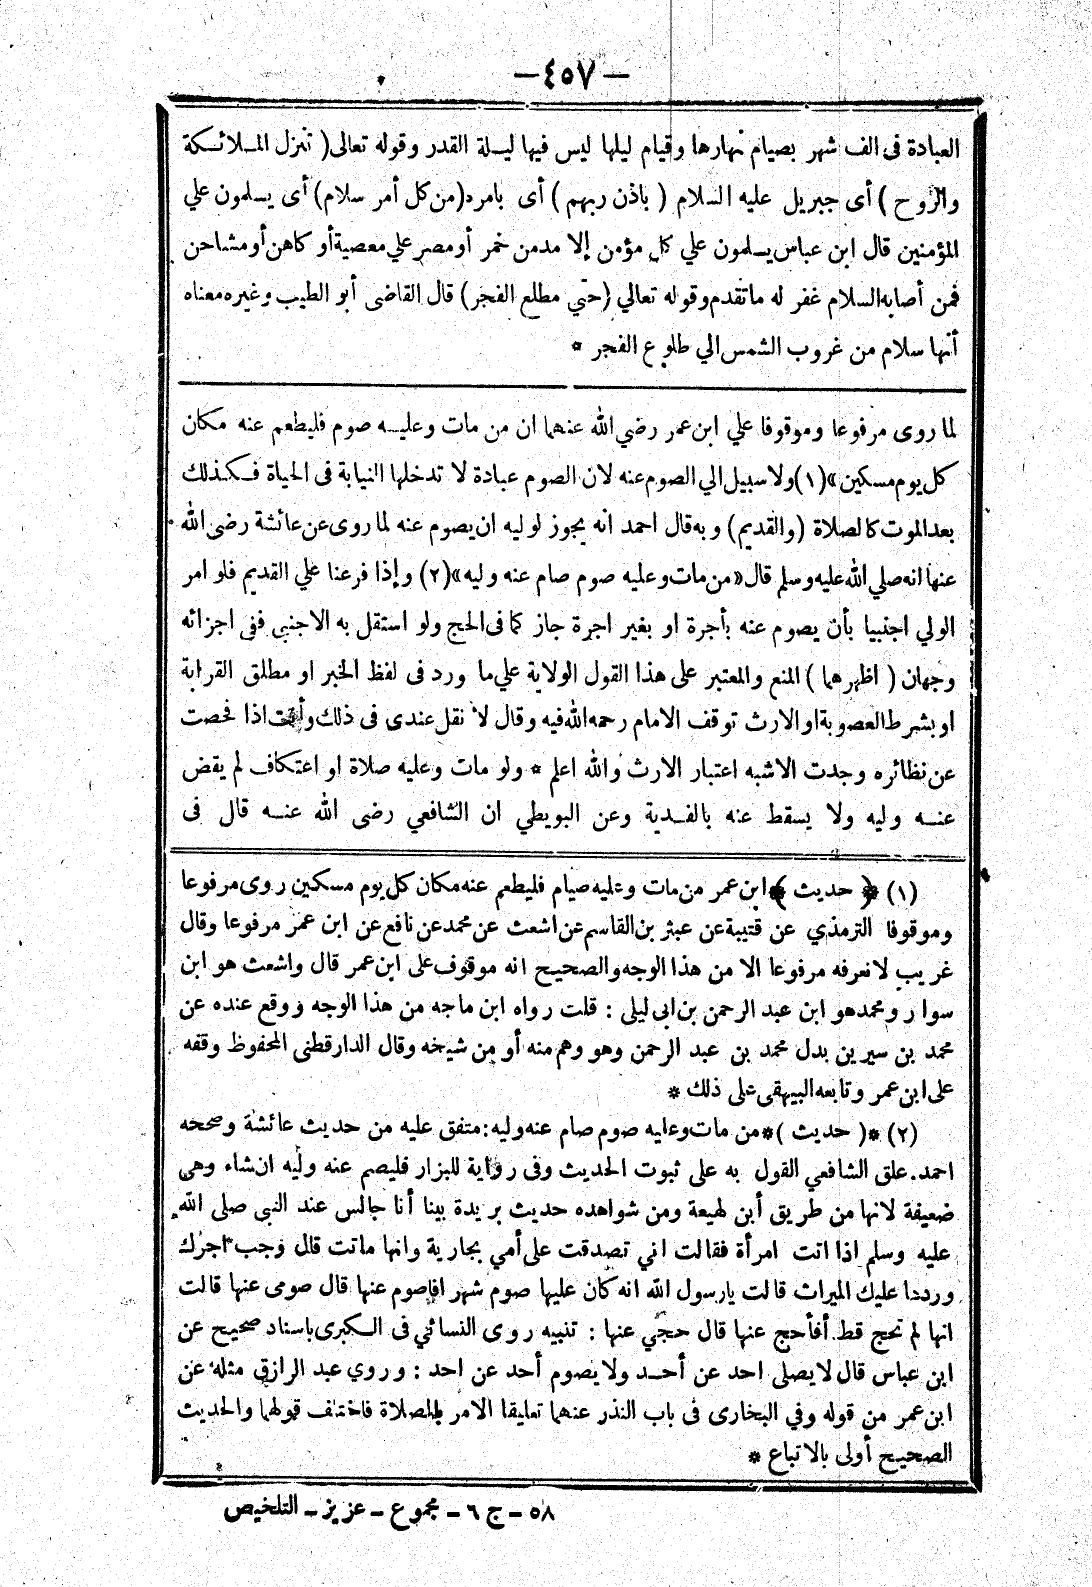 — ٤٥٧ —
العبادة فى الف شهر بصيام نهارها وقيام ليلها ليس فيها ليلة القدر وقوله تعالى ( تنزل الملائكة
والروح ) أى جبريل عليه السلام ( باذن ربهم ) أى بامره ( من كل أمر سلام ) أى يسلمون علي
المؤمنين قال ابن عباس يسلمون علي كل مؤمن إلا مدمن خمر أو مصر علي معصية أو كاهن أو مشاحن
فمن أصابه السلام غفر له ما تقدم وقوله تعالي ( حتي مطلع الفجر ) قال القاضى أبو الطيب وغيره معناه
أنها سلام من غروب الشمس الي طلوع الفجر *
لما روى مرفوعا وموقوفا علي ابن عمر رضي الله عنهما ان من مات وعليه صوم فليطعم عنه مكان
كل يوم مسكين » (١) ولا سبيل الي الصوم عنه لان الصوم عبادة لا تدخلها النيابة فى الحياة فكذلك
بعد الموت كالصلاة ( والقديم ) وبه قال احمد انه يجوز لوليه ان يصوم عنه لما روى عن عائشة رضى الله
عنها انه صلي الله عليه وسلم قال « من مات وعليه صوم صام عنه وليه » (٢) وإذا فرعنا علي القديم فلو امر
الولي اجنبيا بأن يصوم عنه بأجرة او بغير اجرة جاز كما فى الحج ولو استقل به الاجنبى ففى اجزائه
وجهان ( اظهرهما ) المنع والمعتبر على هذا القول الولاية علي ما ورد فى لفظ الخبر او مطلق القرابة
او بشرط العصوبة او الارث توقف الامام رحمه الله فيه وقال لا نقل عندى فى ذلك وأنت اذا فحصت
عن نظائره وجدت الاشبه اعتبار الارث والله اعلم * ولو مات وعليه صلاة او اعتكاف لم يقض
عنه وليه ولا يسقط عنه بالفدية وعن البويطي ان الشافعي رضى الله عنه قال فى
(١) * ( حديث ) * ابن عمر من مات وعليه صيام فليطعم عنه مكان كل يوم مسكين روى مرفوعا
وموقوفا الترمذي عن قتيبة عن عبثر بن القاسم عن اشعث عن محمد عن نافع عن ابن عمر مرفوعا وقال
غريب لا نعرفه مرفوعا الا من هذا الوجه والصحيح انه موقوف على ابن عمر قال واشعث هو ابن
سوار ومحمد هو ابن عبد الرحمن بن ابى ليلى : قلت رواه ابن ماجه من هذا الوجه ووقع عنده عن
محمد بن سيرين بدل محمد بن عبد الرحمن وهو وهم منه أو من شيخه وقال الدارقطنى المحفوظ وقفه
على ابن عمر وتابعه البيهقى على ذلك *
(٢) * ( حديث ) * من مات وعليه صوم صام عنه وليه : متفق عليه من حديث عائشة وصححه
احمد . علق الشافعي القول به على ثبوت الحديث وفى رواية للبزار فليصم عنه وليه ان شاء وهى
ضعيفة لانها من طريق أبن لهيعة ومن شواهده حديث بريدة بينا أنا جالس عند النبى صلى الله
عليه وسلم اذا اتت امرأة فقالت اني تصدقت على أمي بجارية وانها ماتت قال وجب اجرك
وردها عليك الميراث قالت يارسول الله انه كان عليها صوم شهر افاصوم عنها قال صومى عنها قالت
انها لم تحج قط . أفأحج عنها قال حجي عنها : تنبيه روى النسائي فى الكبرى باسناد صحيح عن
ابن عباس قال لا يصلى احد عن أحد ولا يصوم أحد عن احد : وروي عبد الرازق مثله عن
ابن عمر من قوله وفي البخارى فى باب النذر عنهما تعليقا الامر بالصلاة فاختلف قولهما والحديث
الصحيح أولى بالاتباع *
٥٨ – ج ٦ – مجموع – عزيز – التلخيص